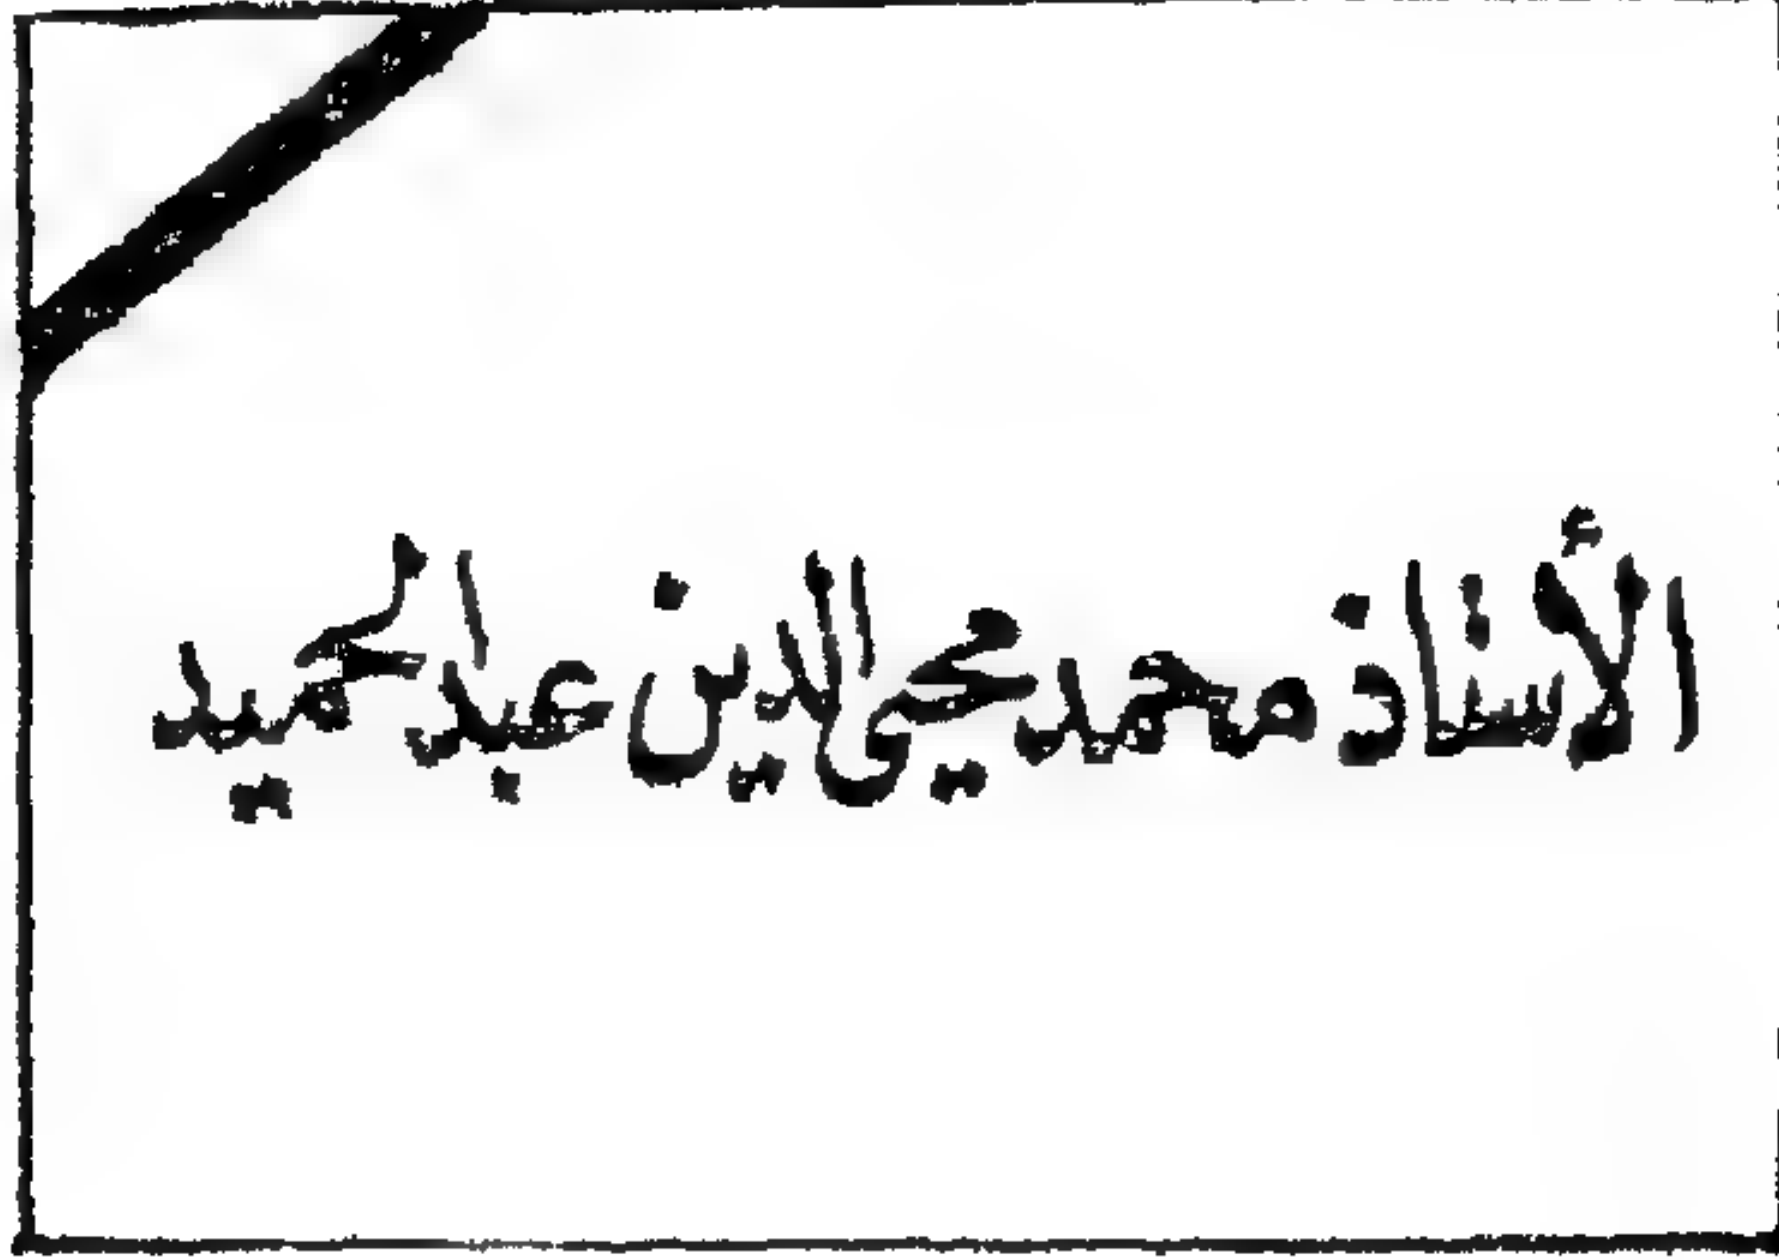 الأستاذ محمد محيي الدين عبد الحميد